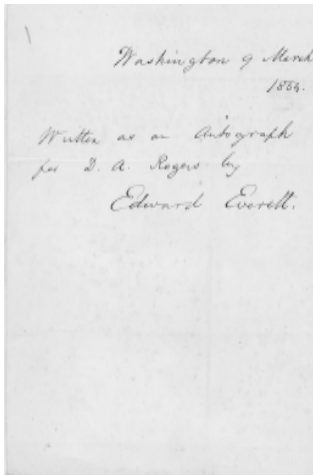 Washington 9 March
1864.
Written as an Autograph
for D. A. Rogers by
Edward Everett.